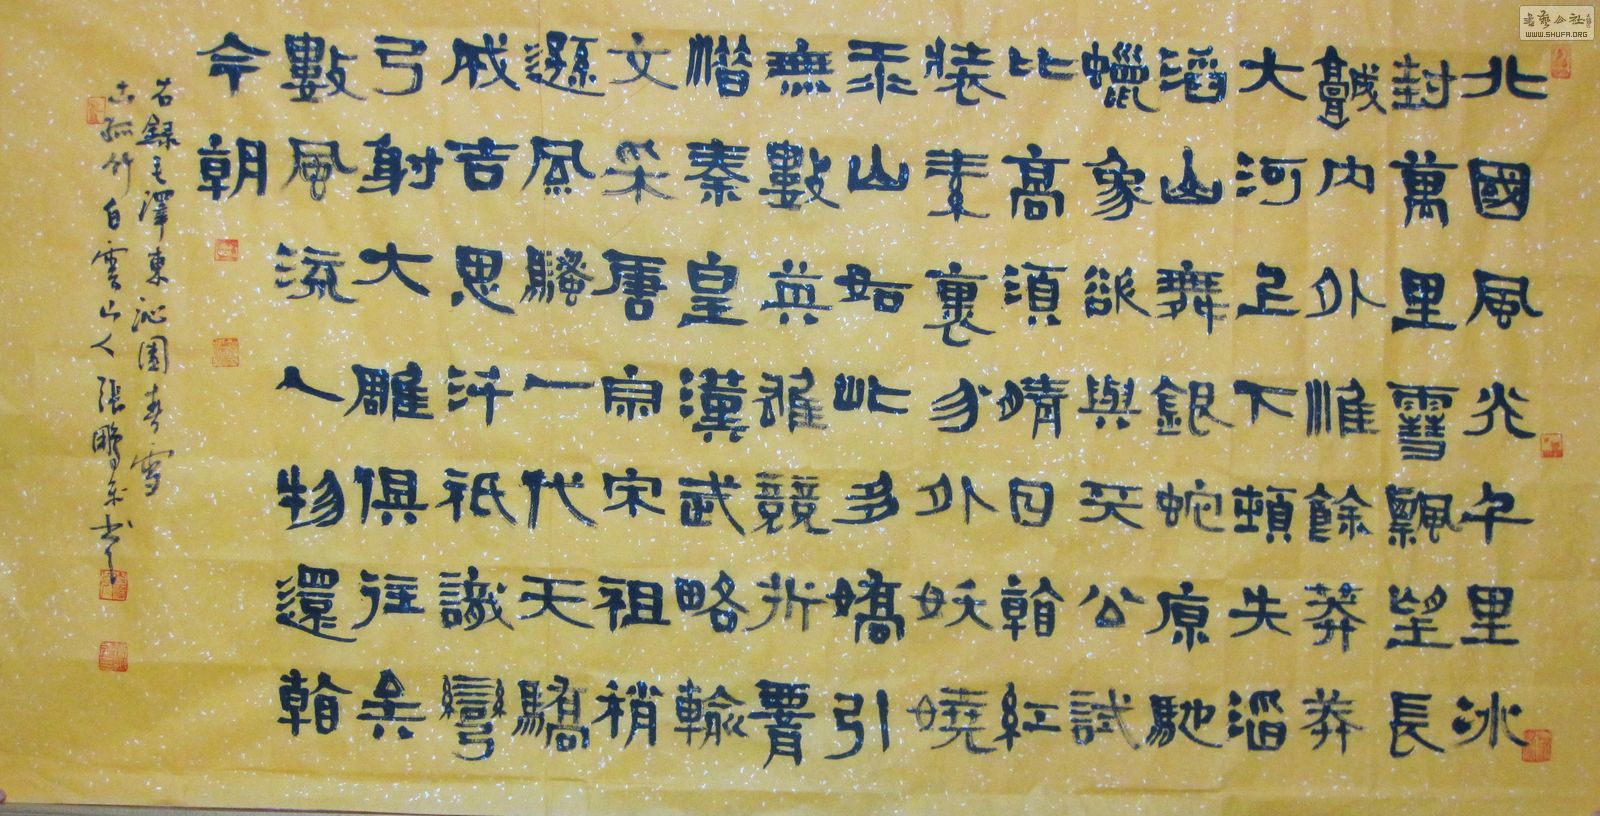 北國風光千里冰
封萬里雪飄望長
城內外惟餘莽莽
大河上下頓失滔
滔山舞銀蛇原馳
蠟象欲與天公試
比高須晴日看紅
裝素裹分外妖嬈
江山如此多嬌引
無數英雄競折腰
惜秦皇漢武略輸
文采唐宗宋祖稍
遜風騷一代天驕
成吉思汗祇識彎
弓射大雕俱往矣
數風流人物還看
今朝
右錄毛澤東沁園春雪
古孤竹白雲山人張鵬
書藝公社
WWW.SHUFA.ORG